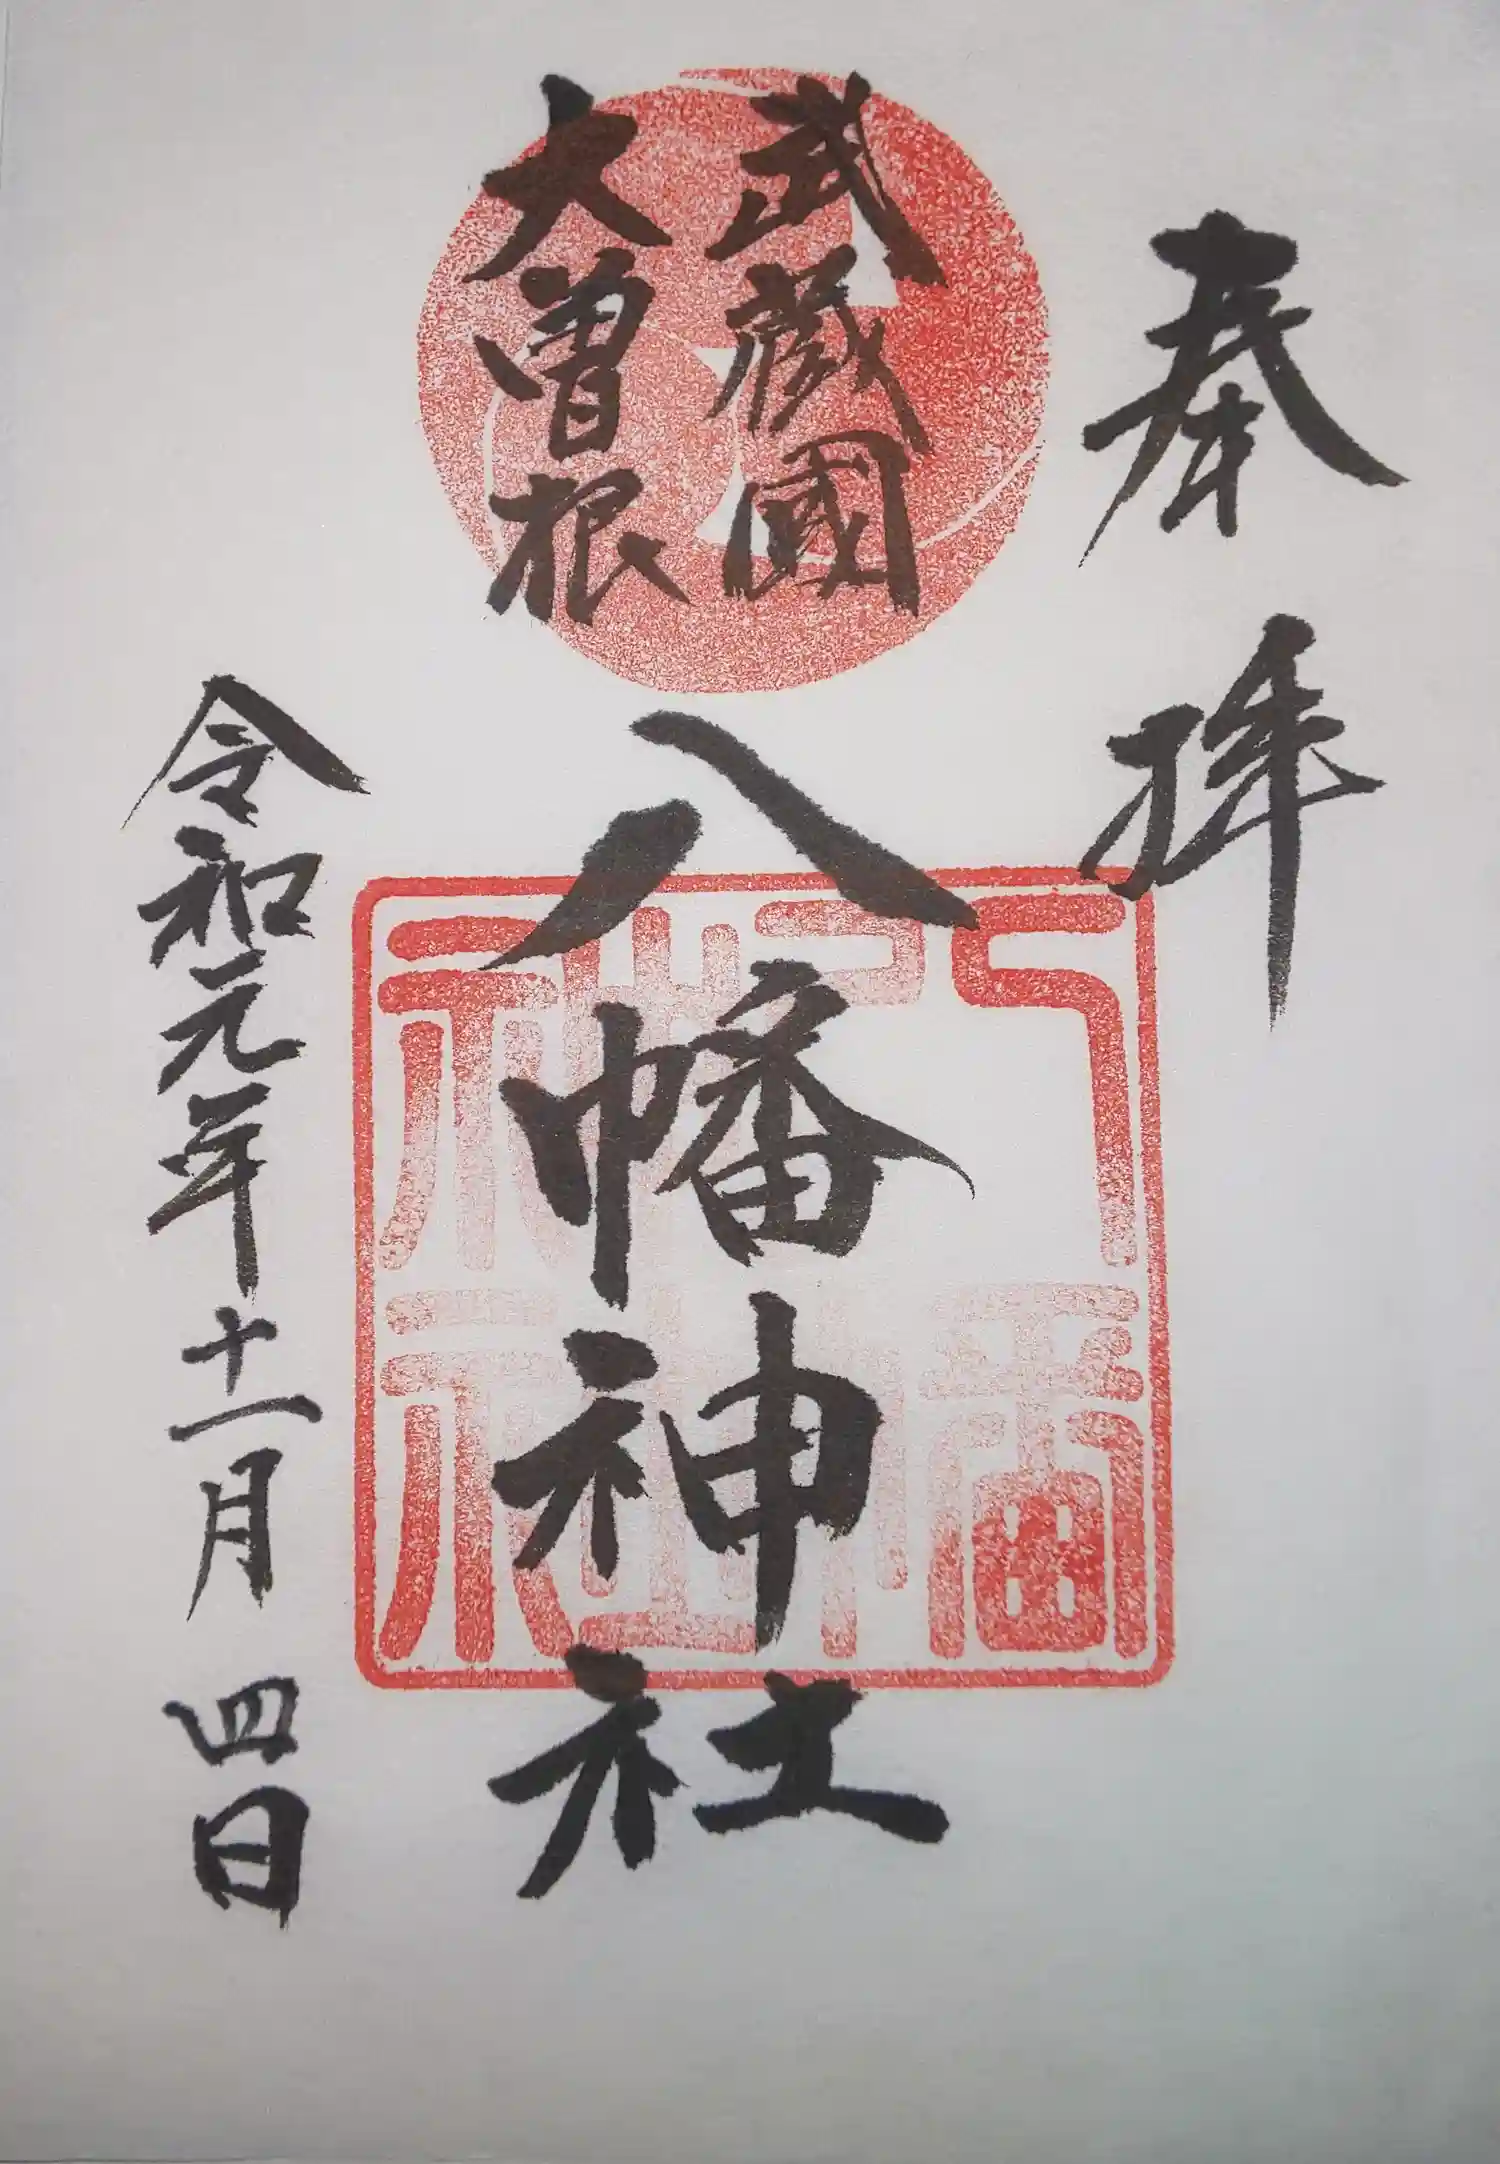 奉拝
武蔵國
大曽根
八幡神社
八幡神社
令和元年十一月四日